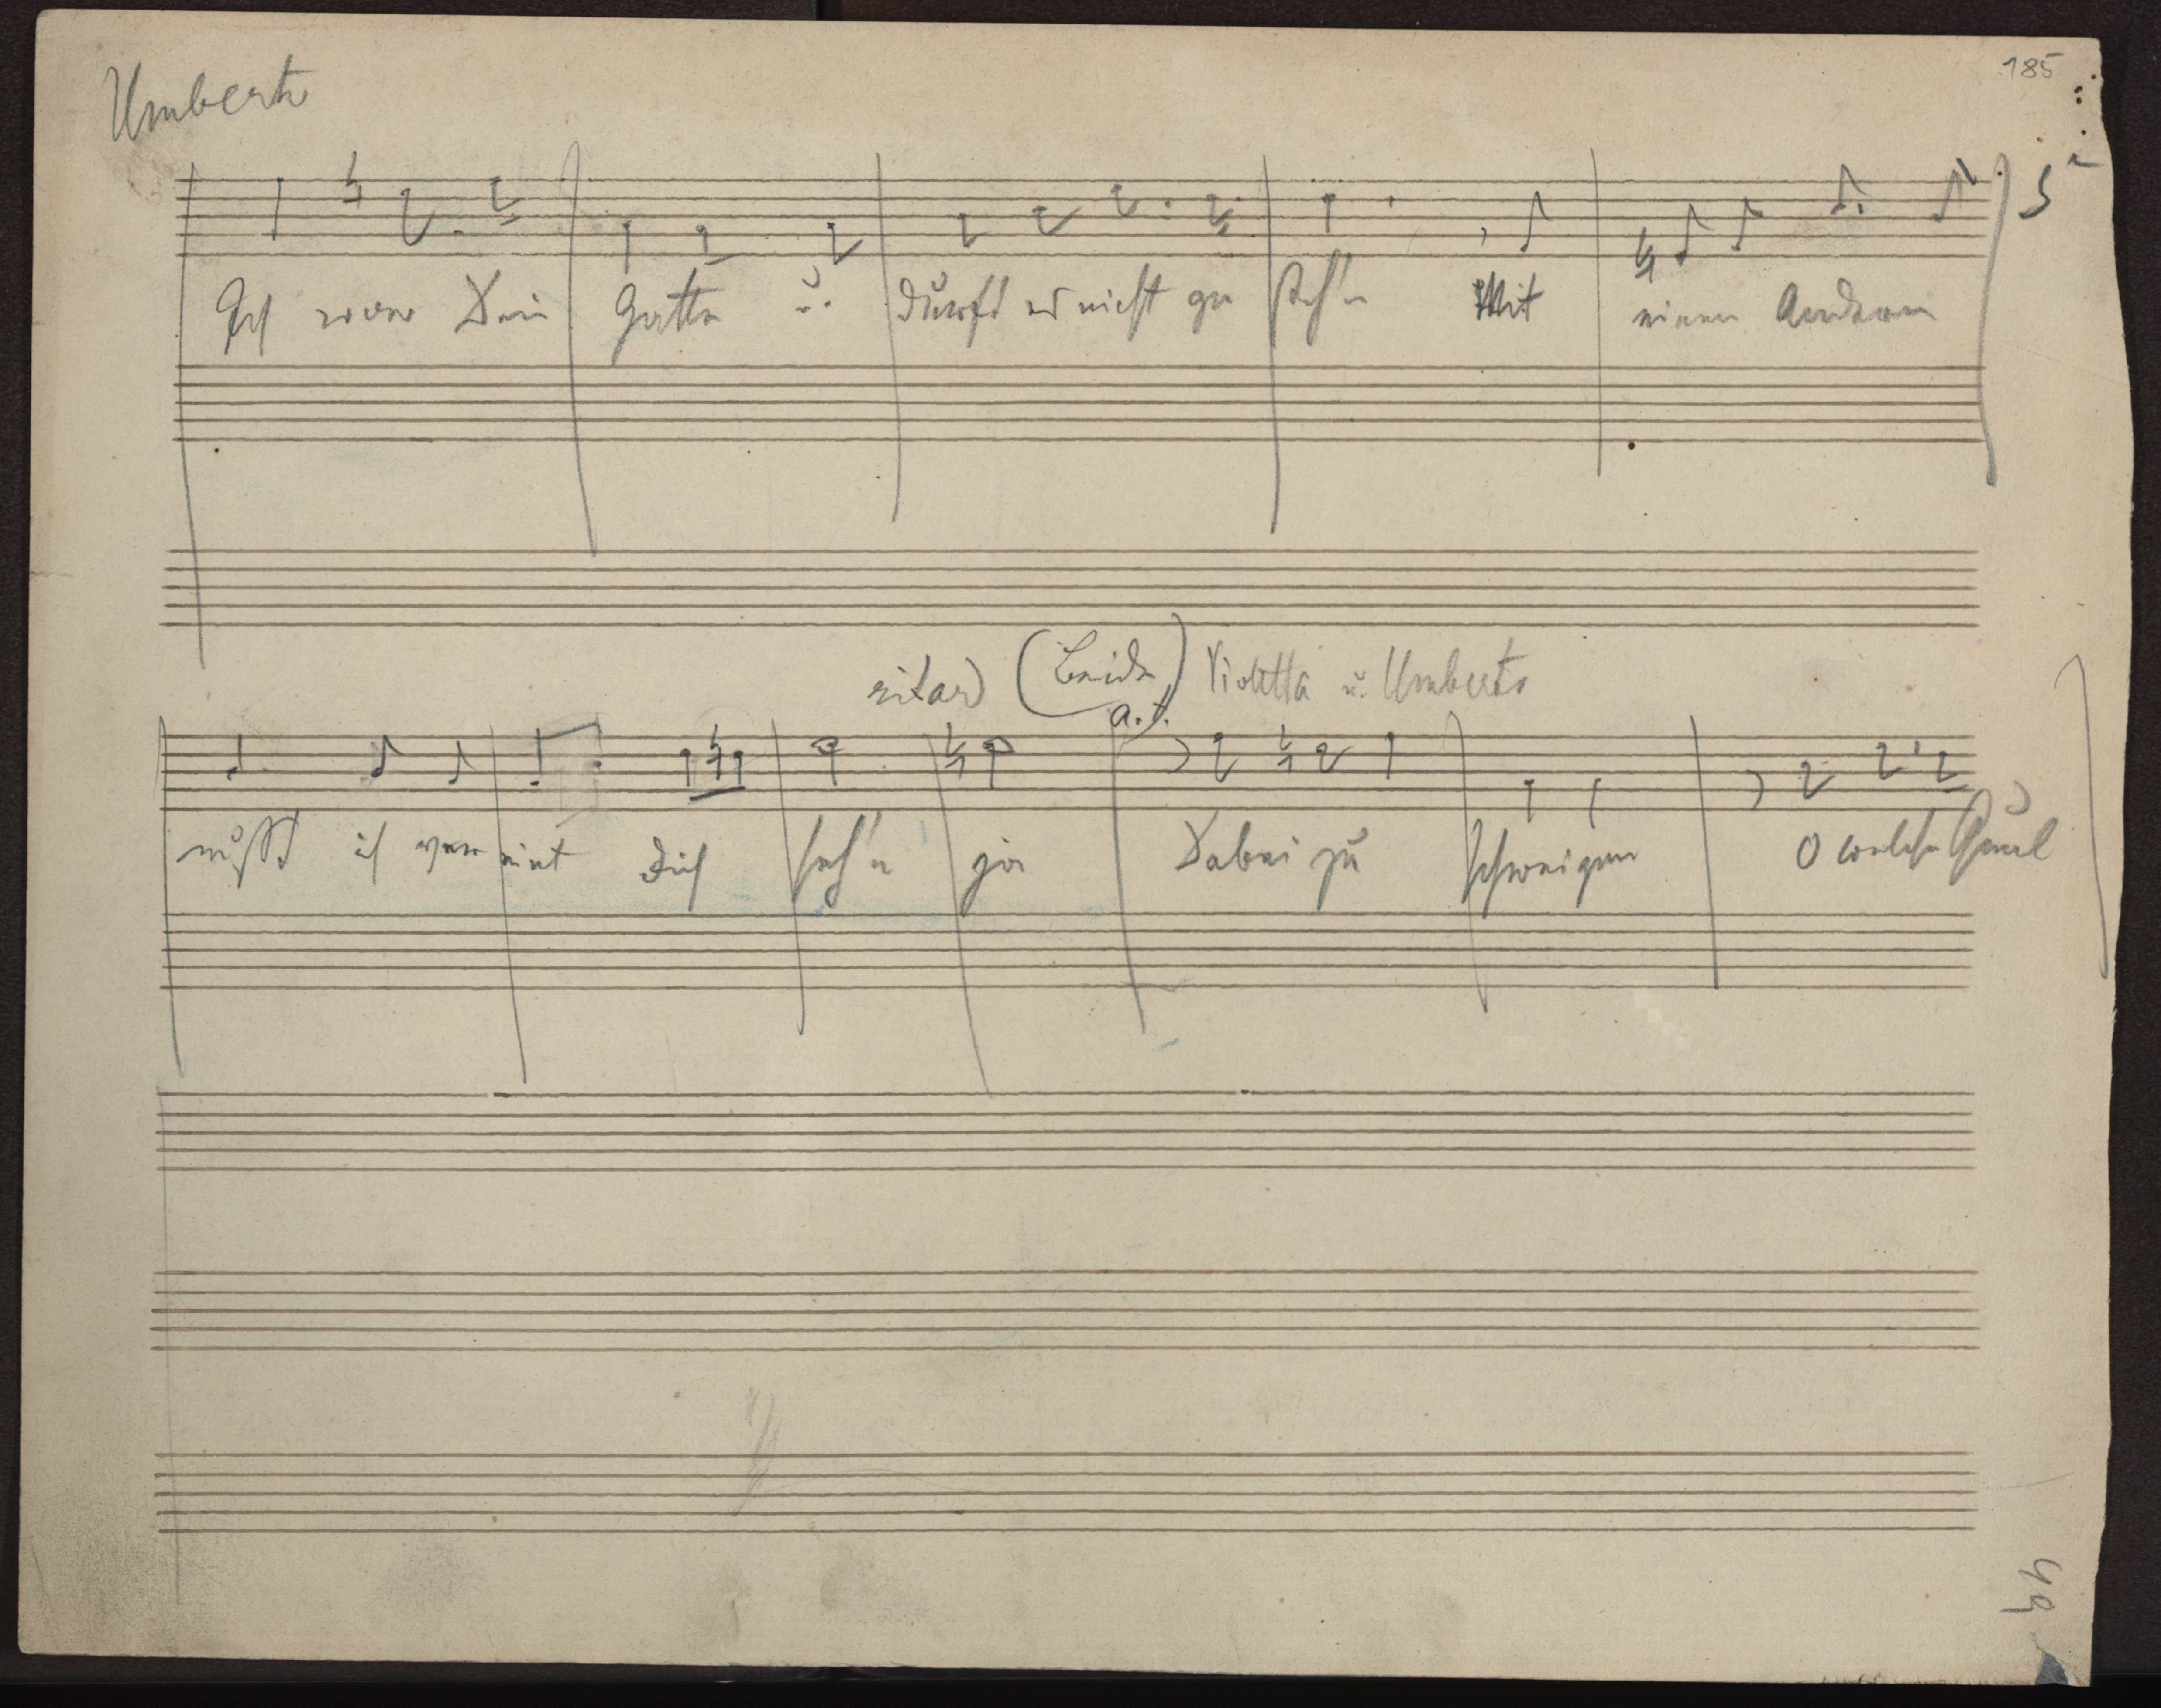 185
Umberto
Ich war Dein Gatte u. durft es nicht ge steh'n Mit einem Andern
ritar (Beide) Violetta u. Umberto
a. t.
mußt ich ver eint Dich seh'n ja Dabei zu schweigen O welche Qual
49